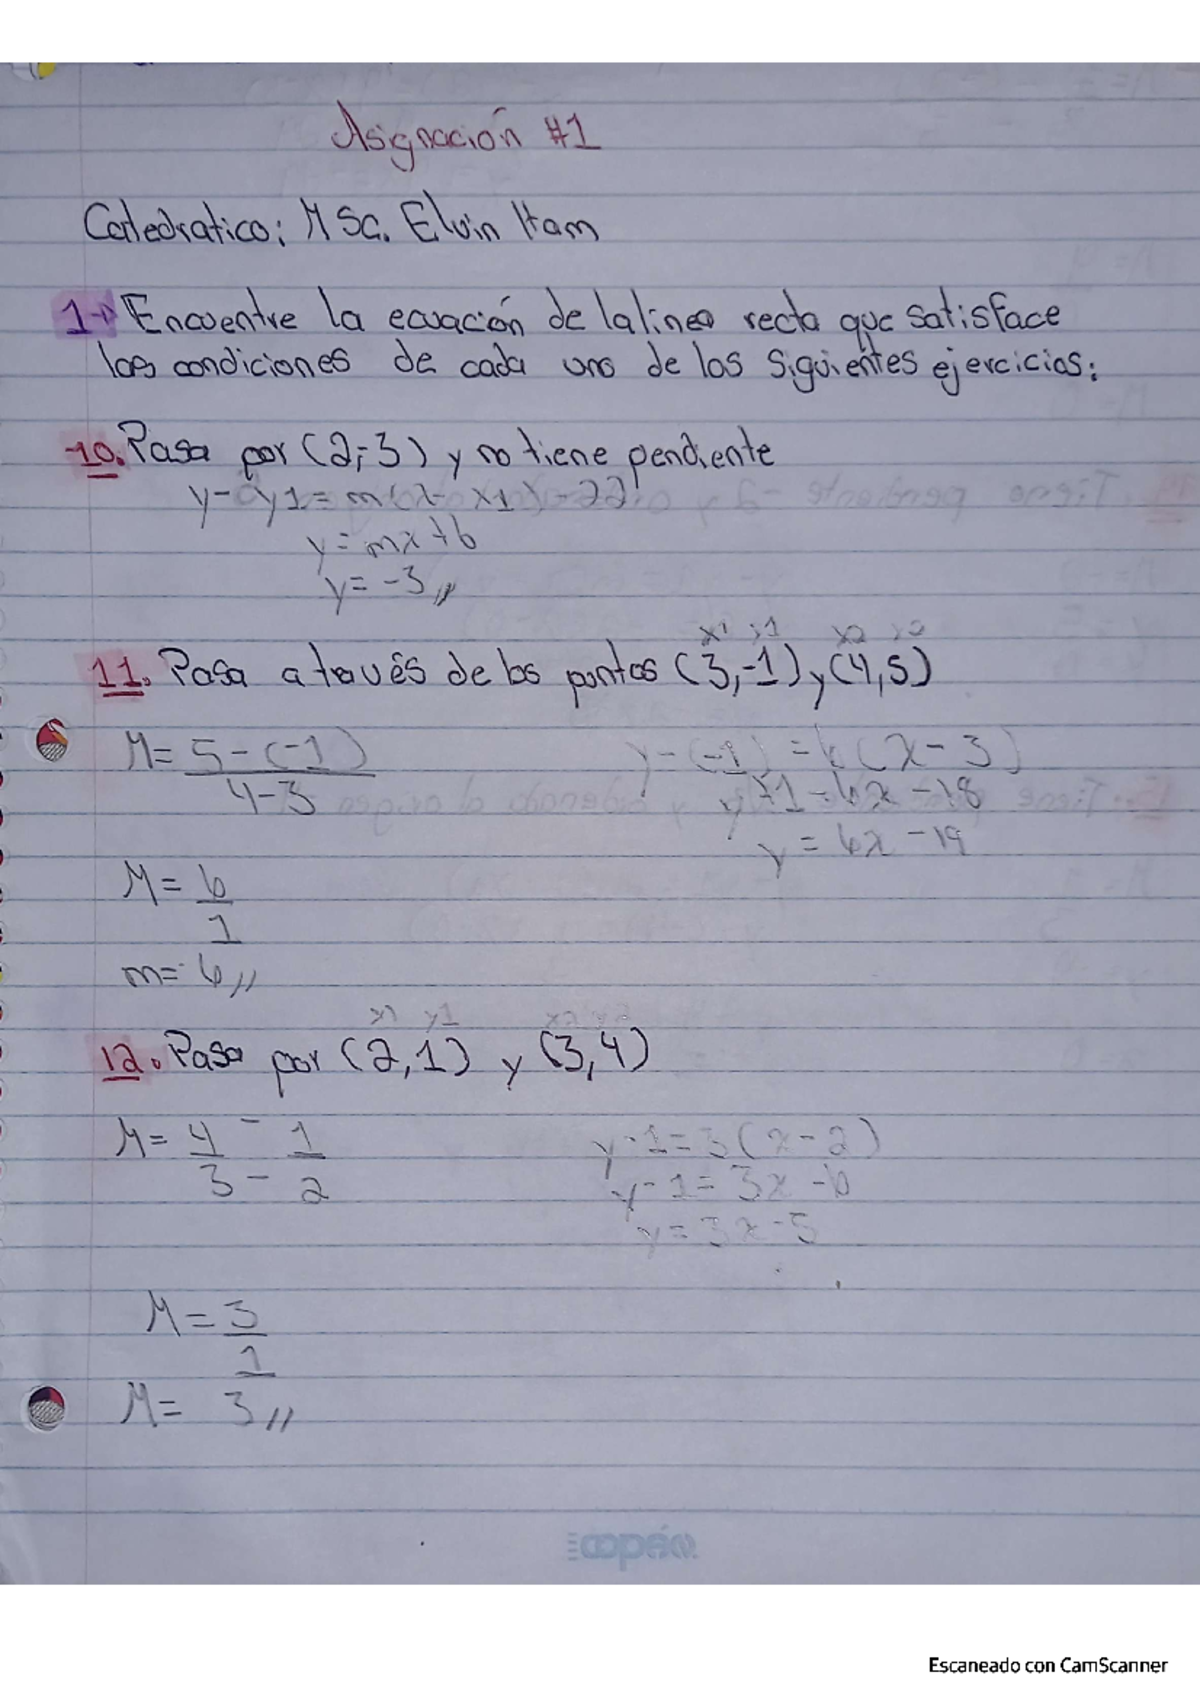 Asignación #1
Catedratico: MSc. Elvin Ham
1- Encuentre la ecuación de la linea recta que satisface
las condiciones de cada uno de los siguientes ejercicios:
10. Pasa por (2,-3) y no tiene pendiente
y- y1 = m(x- x1)
y = mx + b
y = -3 //
x1 y1 x2 y2
11. Pasa a través de los puntos (3,-1) y (4,5)
M = 5-(-1)
4-3
y-(-1) = 6(x-3)
y+1 = 6x - 18
y = 6x - 19
M = 6
1
m = 6 //
x1 y1 x2 y2
12. Pasa por (2,1) y (3,4)
M = 4 - 1
3 - 2
y-1 = 3(x-2)
y-1 = 3x - 6
y = 3x - 5
M = 3
1
M = 3 //
Escaneado con CamScanner